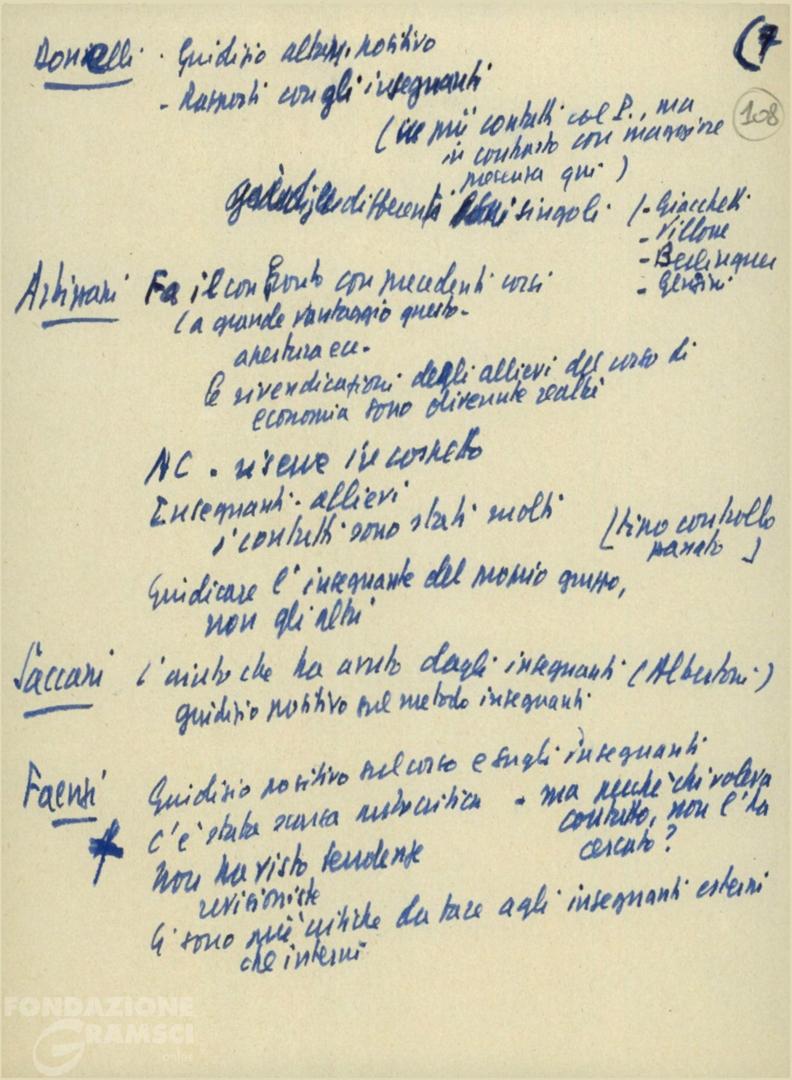 (7
108
Donielli · Giudizio altam. positivo
- Rapporti con gli insegnanti
(ce più contatti col P., ma
in contrasto con maggiore
presenza qui)
differenti singoli (- Giacchetti
- Villone
- Berlinguer
- Gensini
Fa il confronto con precedenti corsi
(a grande vantaggio questo -
apertura ecc.
le rivendicazioni degli allievi del corso di
economia sono divenute realtà
NC - riserve
Insegnanti - allievi
i contatti sono stati molti
(tipo controllo
passato)
Giudicare l'insegnante del proprio gruppo,
non gli altri
Saccani l'aiuto che ha avuto dagli insegnanti (Albertoni)
giudizio positivo sul metodo insegnanti
Faenzi Giudizio positivo sul corso e sugli insegnanti
C'è stata scarsa autocritica - ma perchè chi voleva
contatto, non l'ha
cercato?
Non ha visto tendenze
revisioniste
Ci sono più critiche da fare agli insegnanti esterni
che interni
FONDAZIONE
GRAMSCI